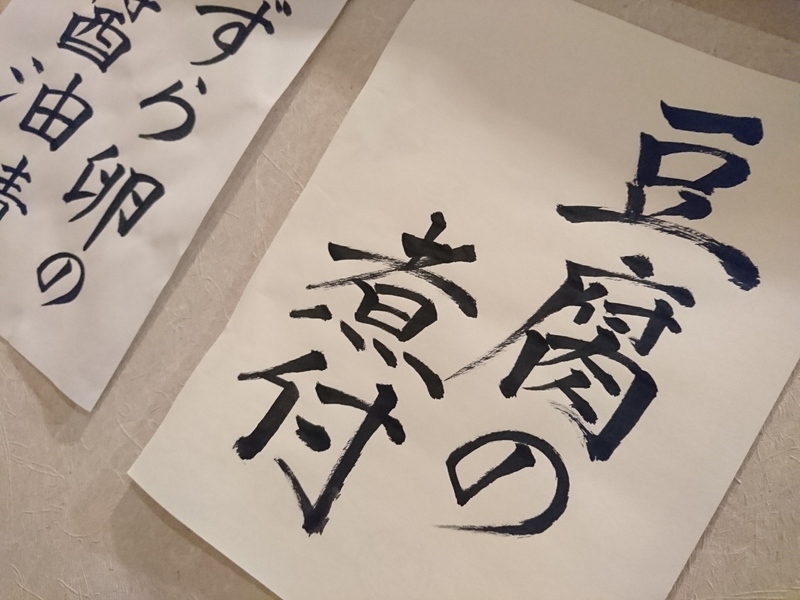 豆腐の
煮付
ずら卵の
油漬